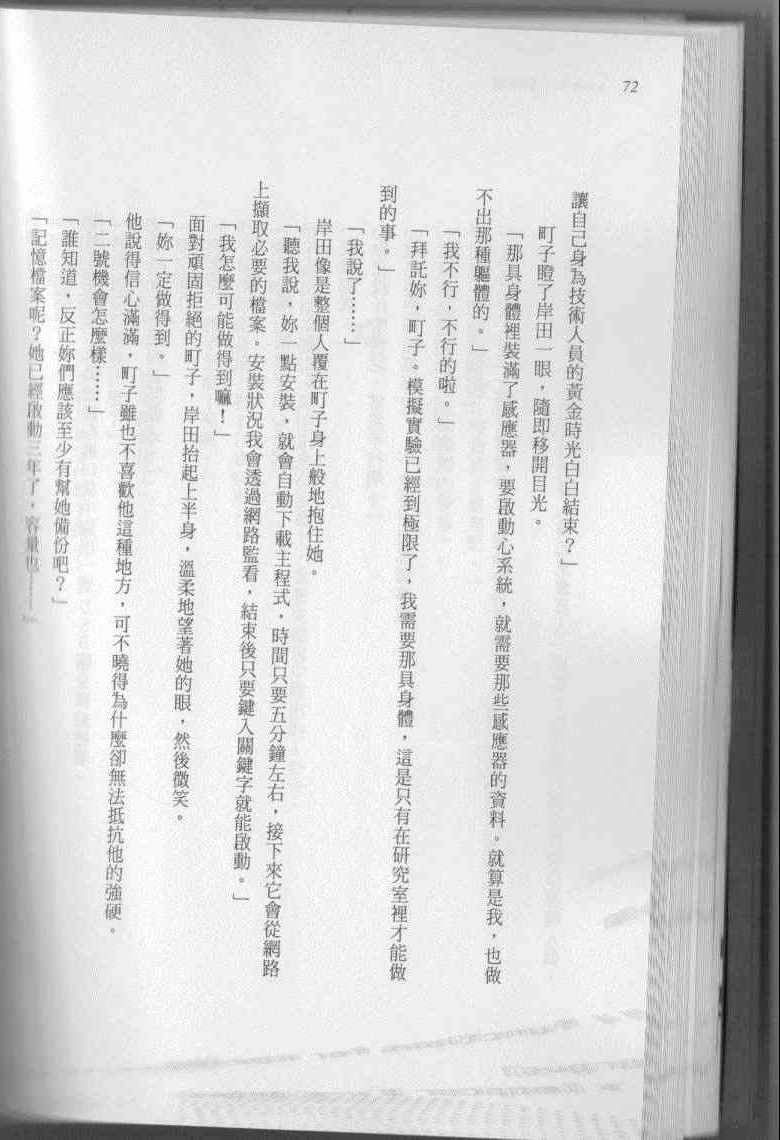 72
讓自己身為技術人員的黃金時光白白結束？」
町子瞪了岸田一眼，隨即移開目光。
「那具身體裡裝滿了感應器，要啟動心系統，就需要那些感應器的資料。就算是我，也做
不出那種軀體的。」
「我不行，不行的啦。」
「拜託妳，町子。模擬實驗已經到極限了，我需要那具身體，這是只有在研究室裡才能做
到的事。」
「我說了……」
岸田像是整個人覆在町子身上般地抱住她。
「聽我說，妳一點安裝，就會自動下載主程式，時間只要五分鐘左右，接下來它會從網路
上擷取必要的檔案。安裝狀況我會透過網路監看，結束後只要鍵入關鍵字就能啟動。」
「我怎麼可能做得到嘛！」
面對頑固拒絕的町子，岸田抬起上半身，溫柔地望著她的眼，然後微笑。
「妳一定做得到。」
他說得信心滿滿，町子雖也不喜歡他這種地方，可不曉得為什麼卻無法抵抗他的強硬。
「二號機會怎麼樣……」
「誰知道，反正妳們應該至少有幫她備份吧？」
「記憶檔案呢？她已經啟動三年了，容量也——」